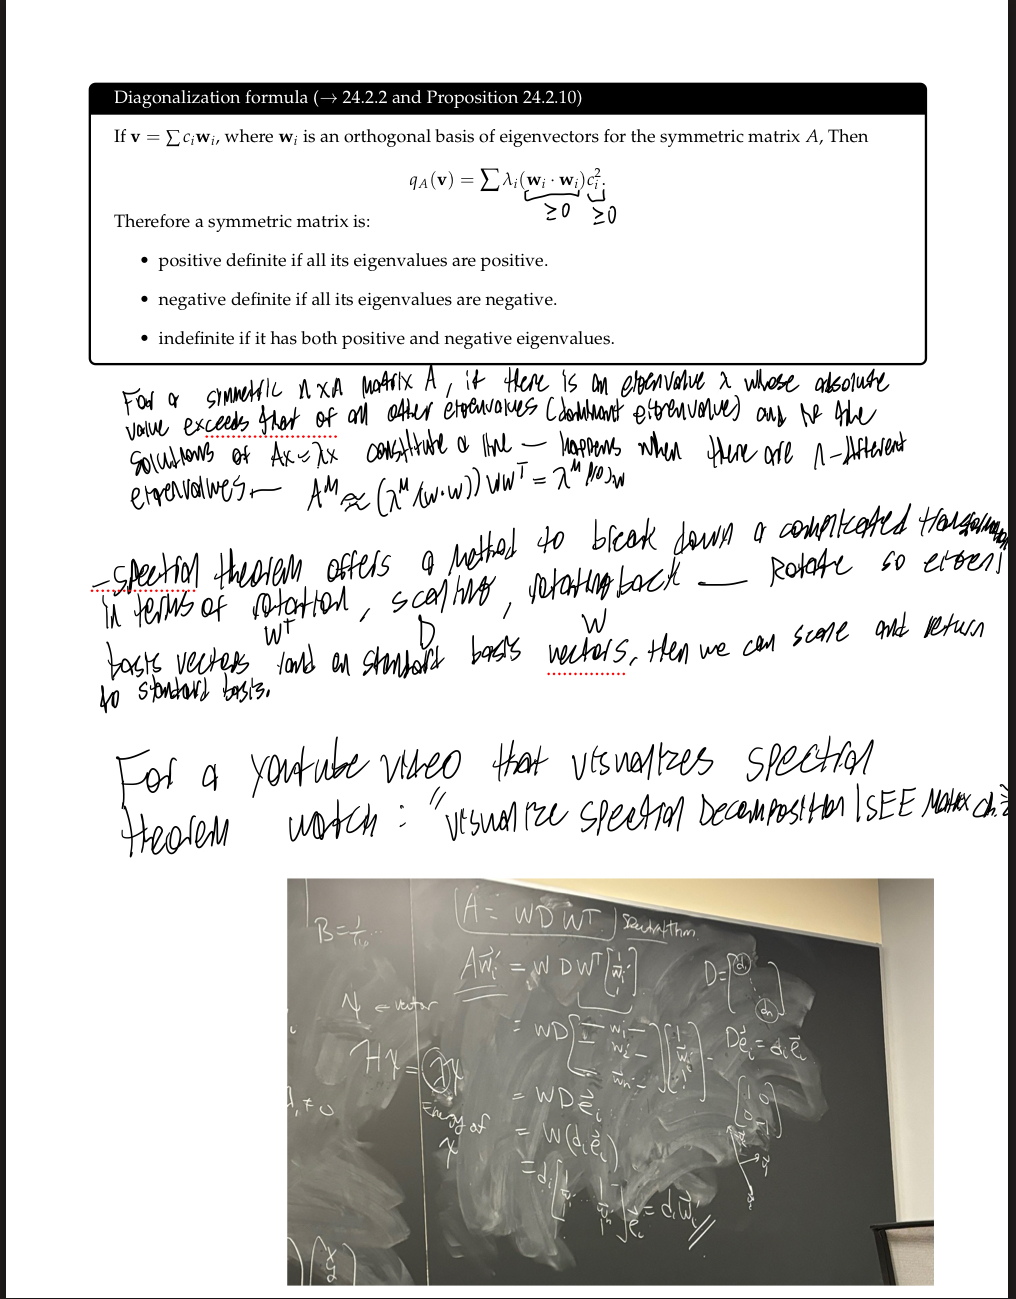 Diagonalization formula (→ 24.2.2 and Proposition 24.2.10)
If v = ∑ cᵢwᵢ, where wᵢ is an orthogonal basis of eigenvectors for the symmetric matrix A, Then
q_A(v) = ∑ λᵢ(wᵢ · wᵢ)cᵢ².
≥0 ≥0
Therefore a symmetric matrix is:
• positive definite if all its eigenvalues are positive.
• negative definite if all its eigenvalues are negative.
• indefinite if it has both positive and negative eigenvalues.
For a symmetric n×n matrix A, if there is an eigenvalue λ whose absolute
value exceeds that of all other eigenvalues (dominant eigenvalue) and the
solutions of Ax=λx constitute a line — happens when there are n-different
eigenvalues — A^M ≈ (λ^M/(w·w)) ww^T = λ^M
- Spectral theorem offers a method to break down a complicated
in terms of rotation, scaling, rotating back — Rotate so eigen
W^T D W
basis vectors land on standard basis vectors, then we can scale and return
to standard basis.
For a youtube video that visualizes spectral
theorem watch: "visualize spectral Decomposition | SEE Matrix ch.
A = WDW^T
B=
Awᵢ = WDW^T [wᵢ]
D= [d₁ dₙ]
ψ ∈ vector
= WD [w₁ wᵢ wₙ] [wᵢ]
Deᵢ = dᵢeᵢ
Hχ = λχ
= WDeᵢ
Energy of
χ
= W(dᵢeᵢ)
= dᵢ [w₁ ... wₙ] eᵢ = dᵢwᵢ